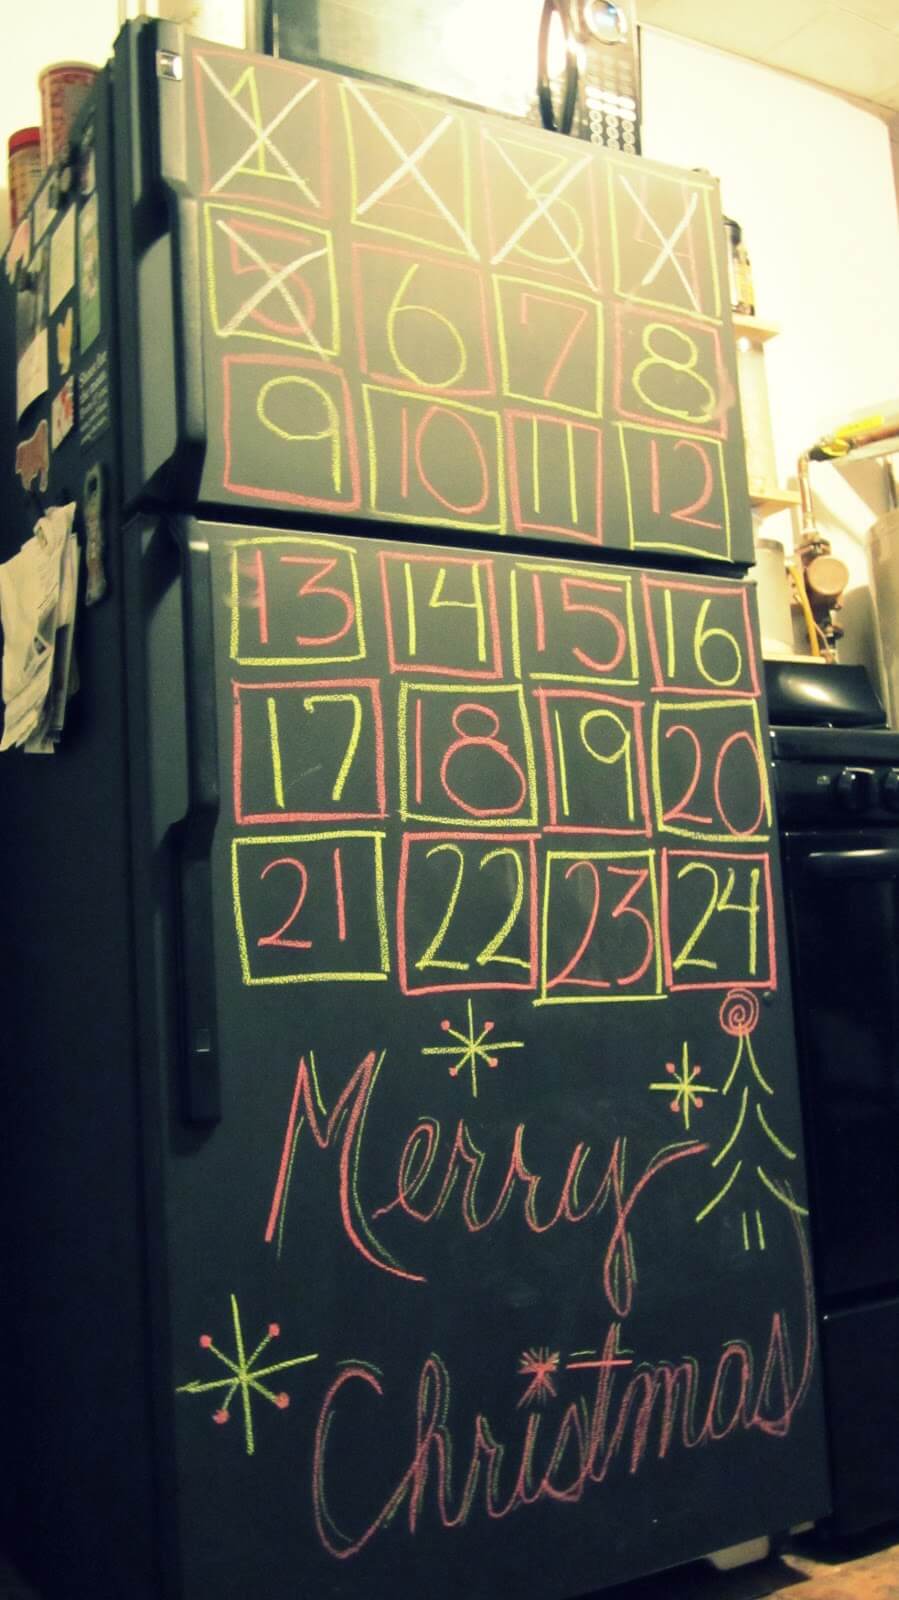 1 2 3 4
5 6 7 8
9 10 11 12
13 14 15 16
17 18 19 20
21 22 23 24
Merry
Christmas